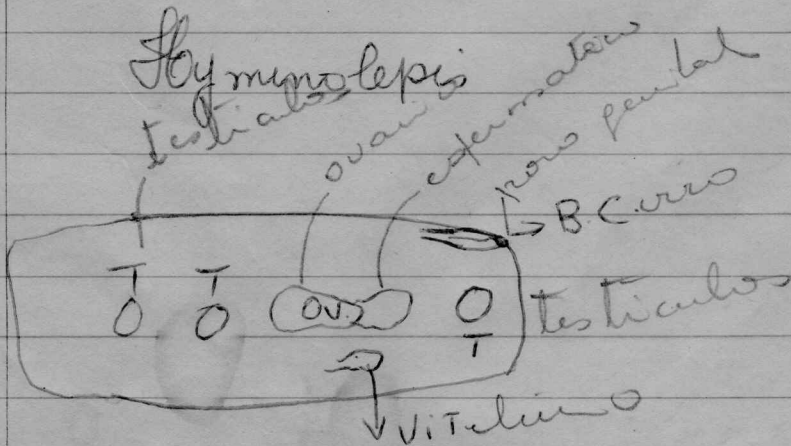 Hyminolepis
testiculos
ovario
poro genital
B.Cirro
T T
OV.
testiculos
T
Vitelino